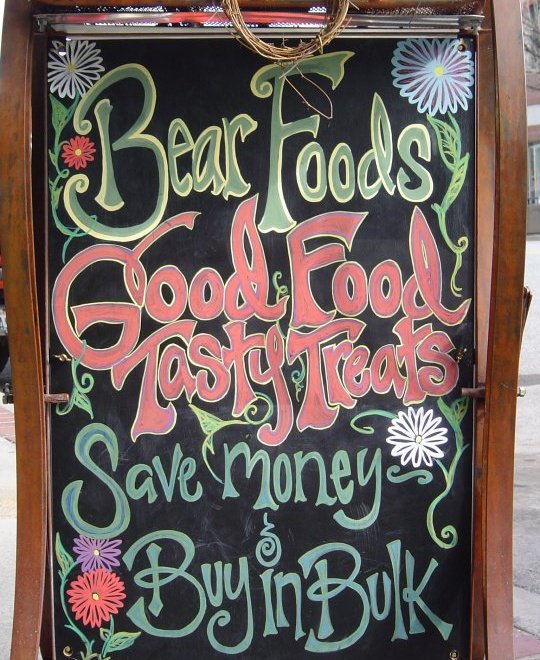 Bear Foods
Good Food
Tasty Treats
Save money
&
Buy in Bulk